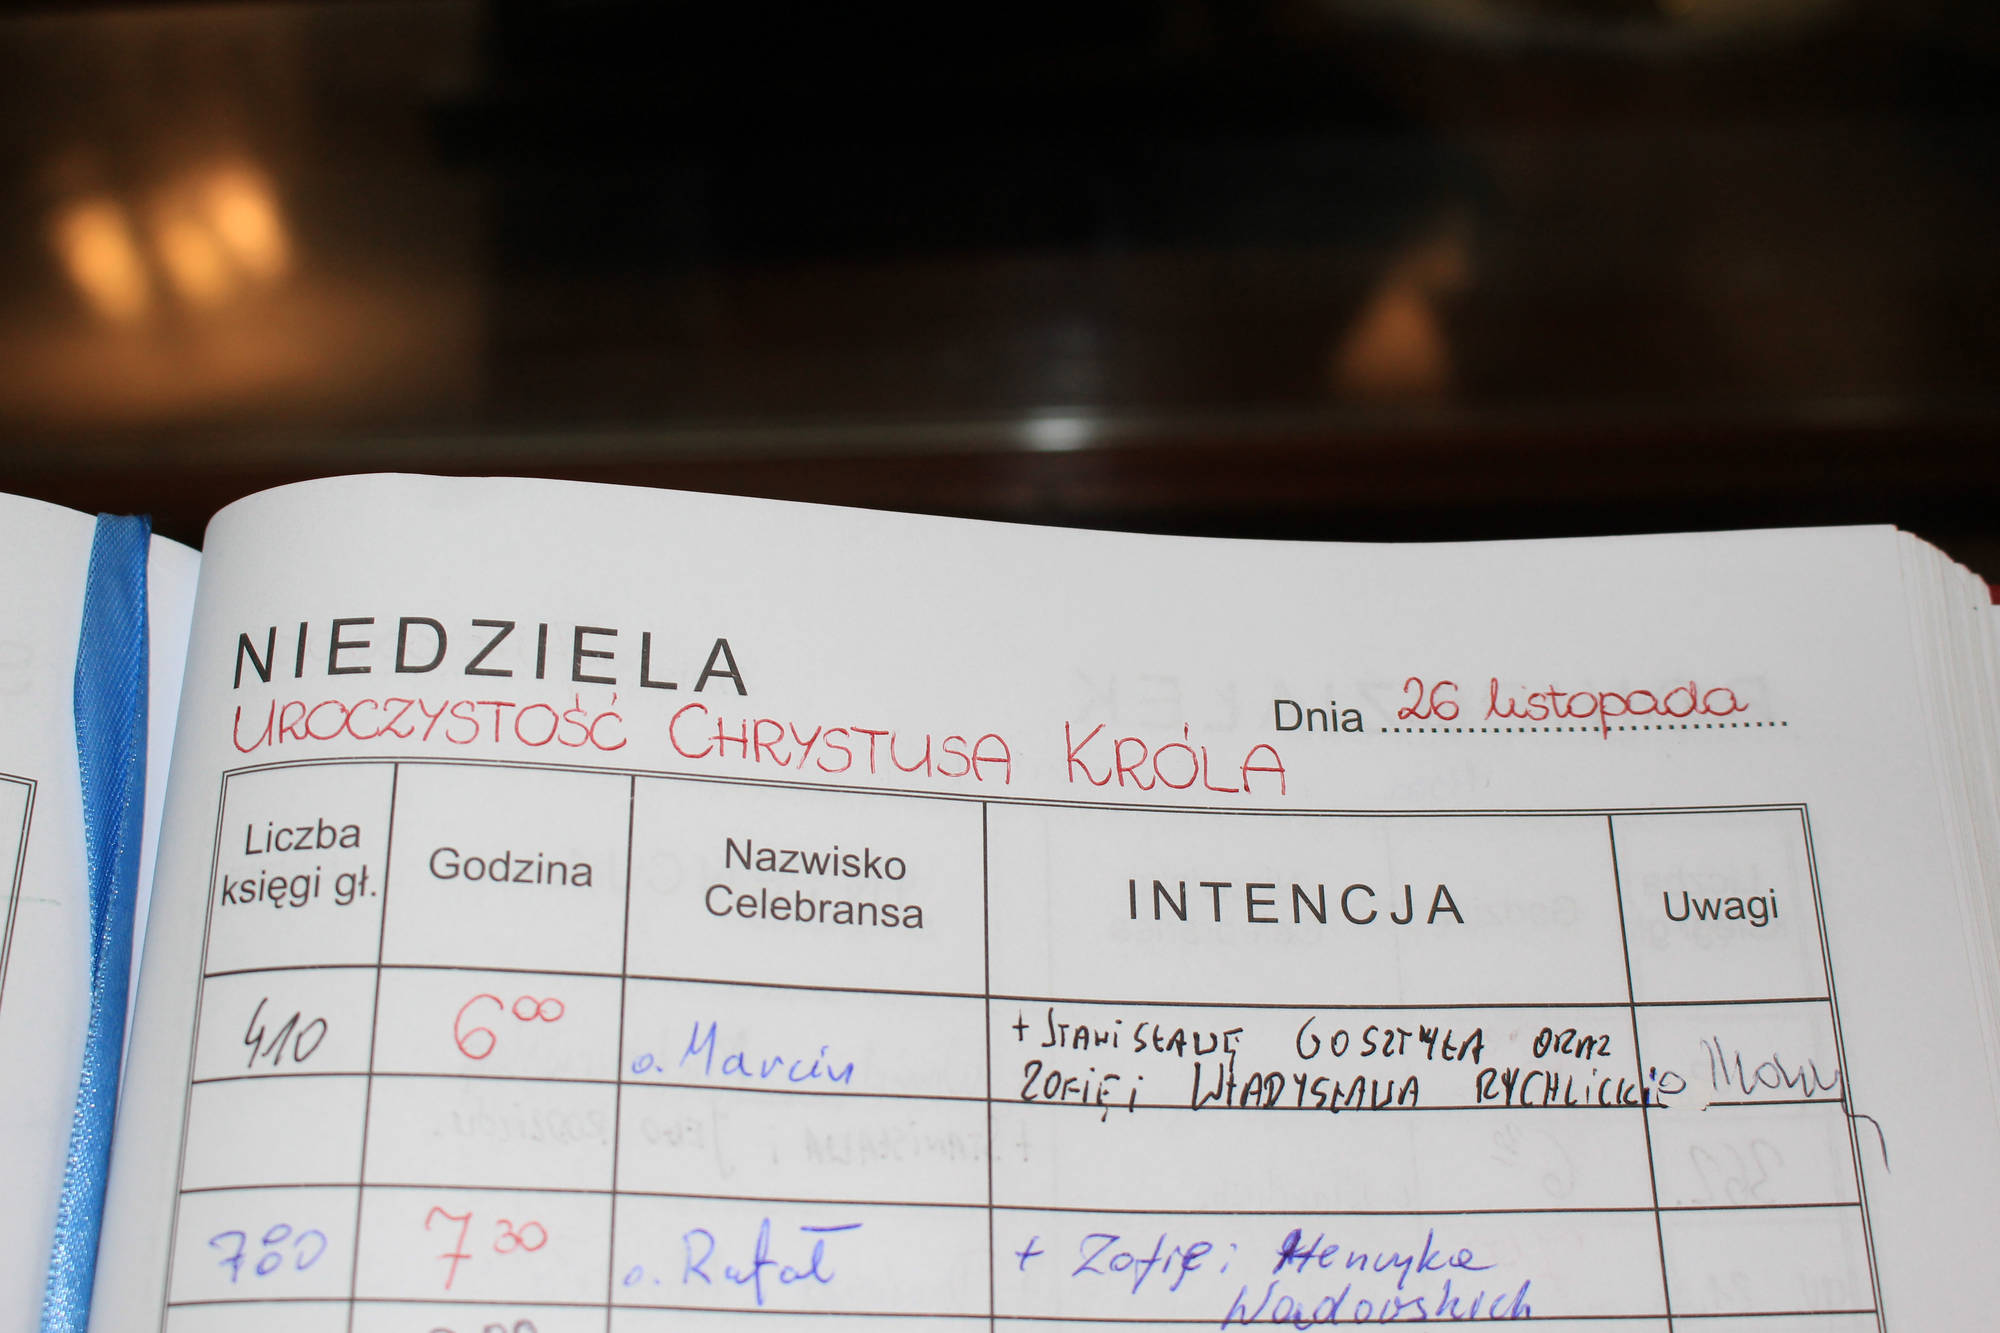 NIEDZIELA
UROCZYSTOŚĆ CHRYSTUSA KRÓLA
Dnia 26 listopada
Liczba
księgi gł.
Godzina
Nazwisko
Celebransa
INTENCJA
Uwagi
410
6 00
o. Marcin
+ STANISŁAWĘ GOSZTYŁA ORAZ
ZOFIĘ i WŁADYSŁAWA RYCHLICKI
780
7 30
o. Rafał
+ Zofię i Henryka
Wadowskich